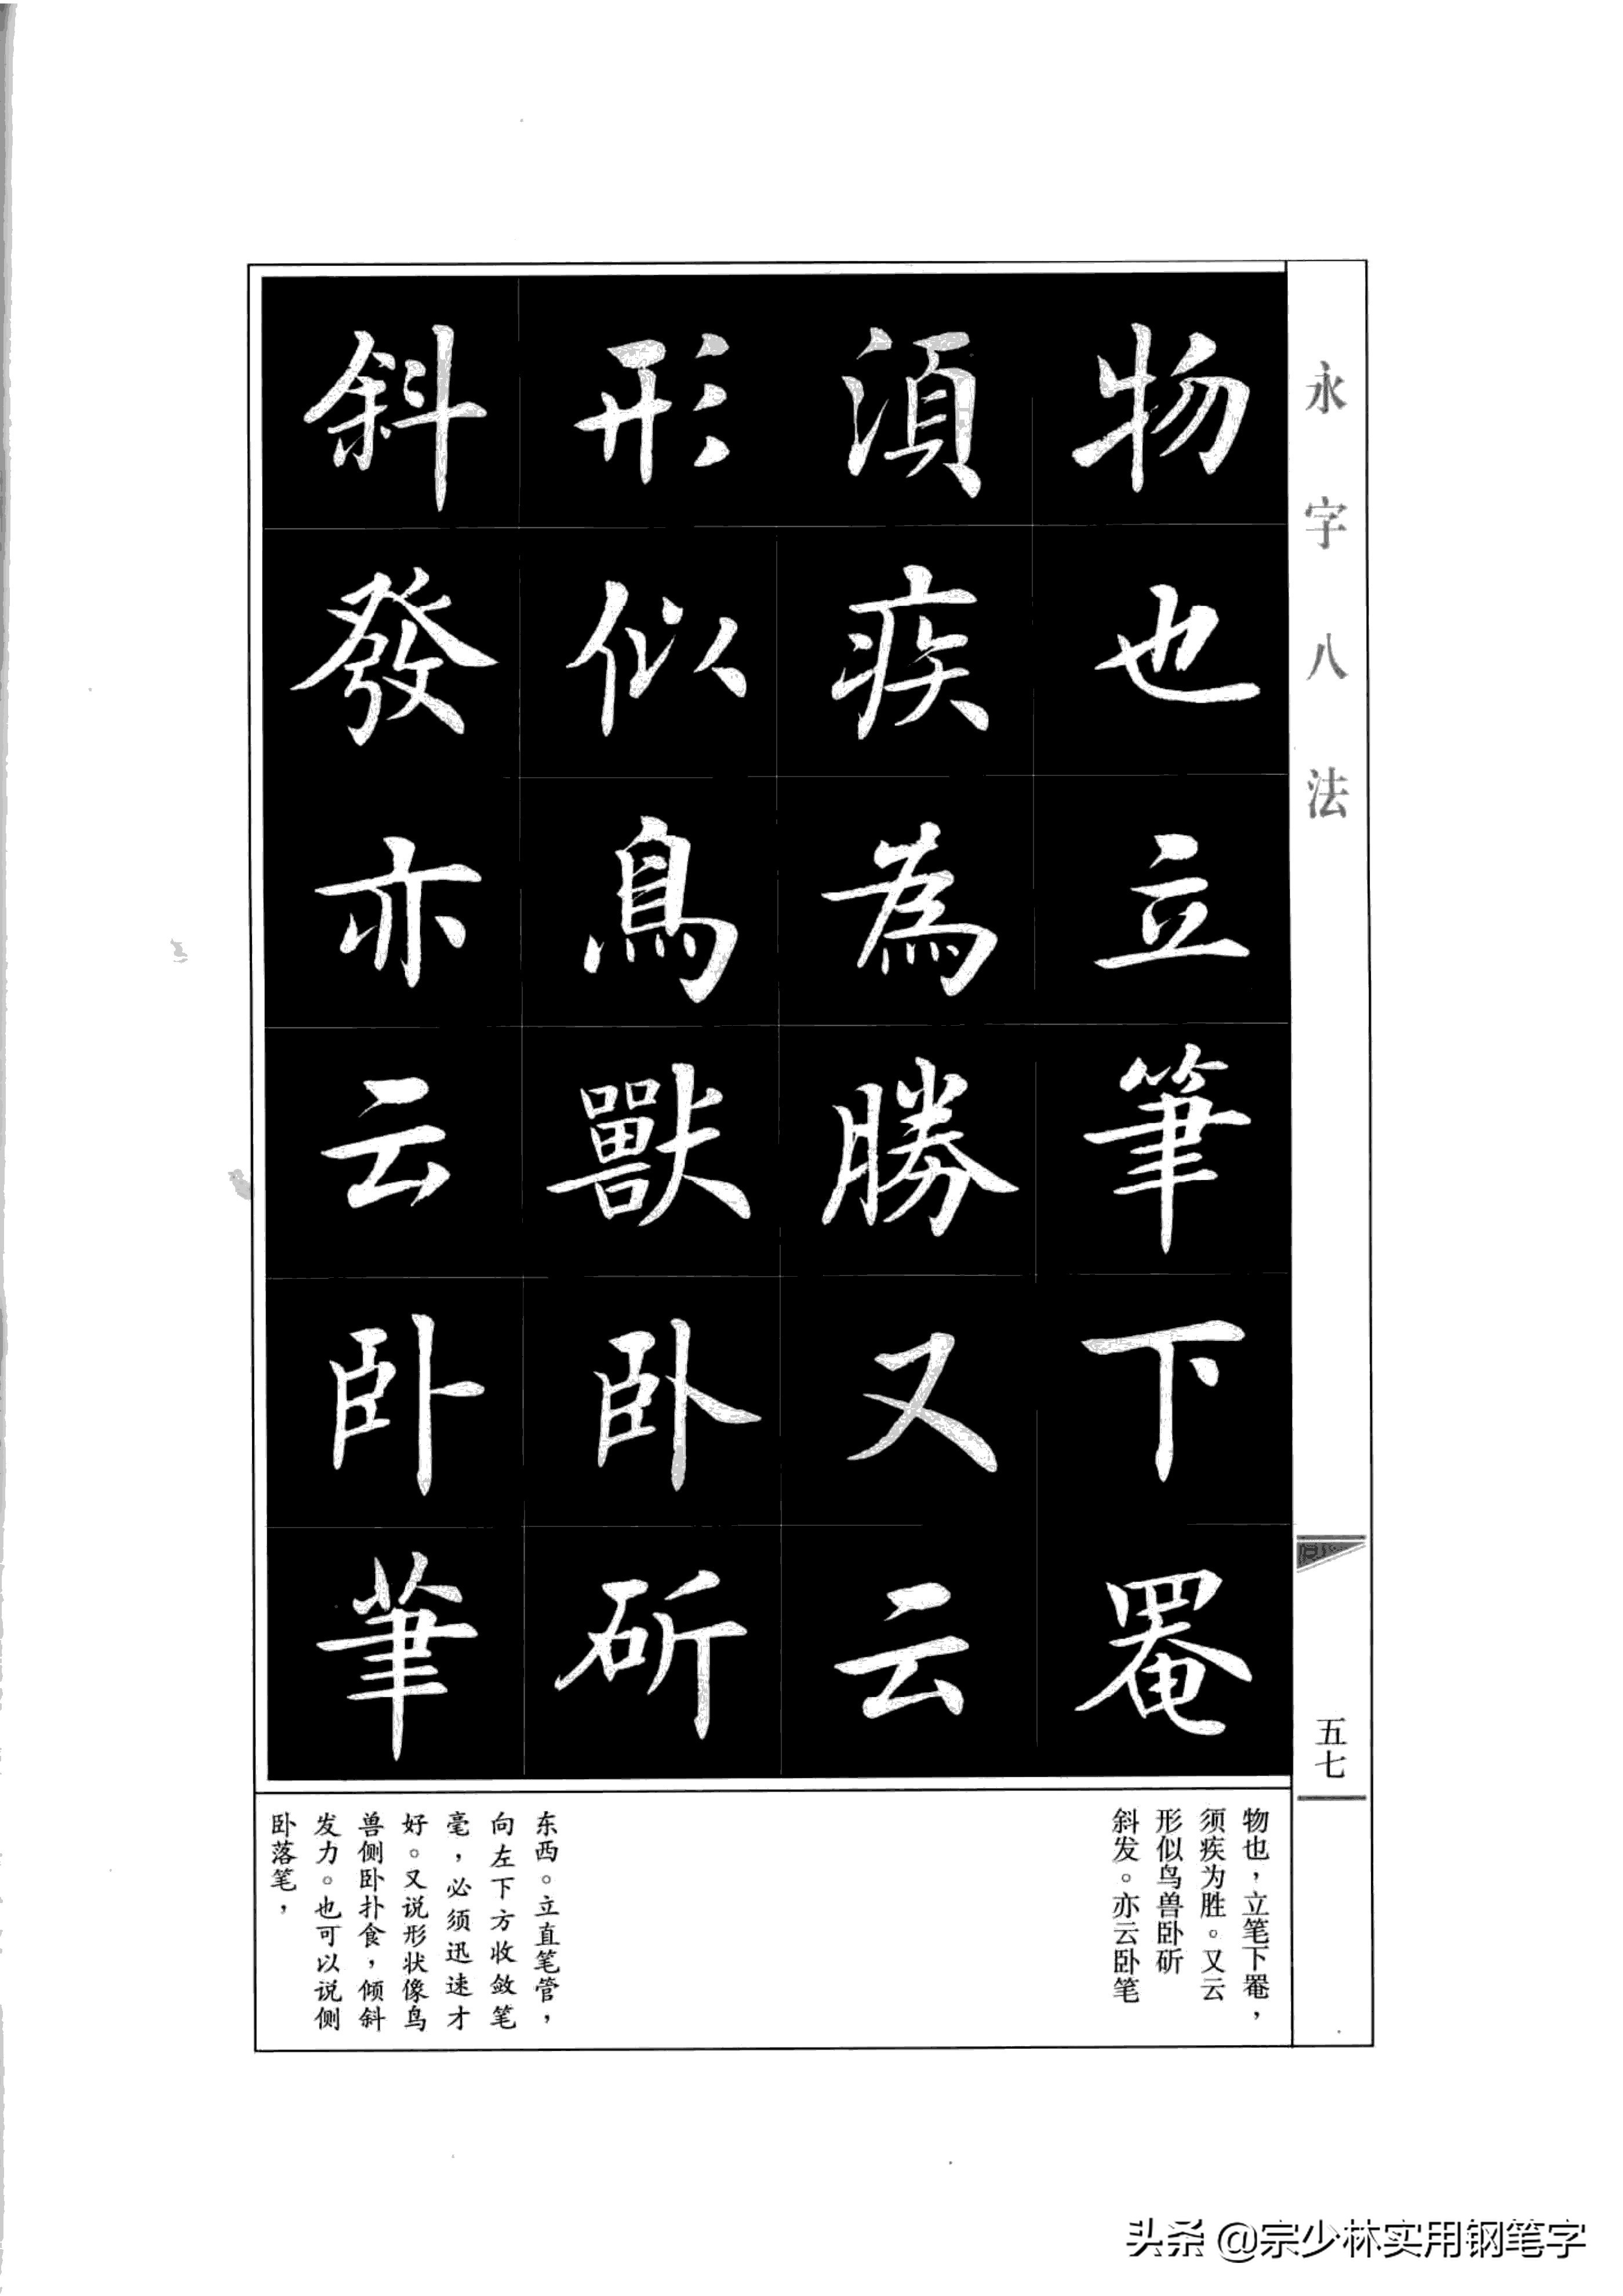 永字八法
五七
物也立筆下罨
須疾為勝又云
形似鳥獸卧斫
斜發亦云卧筆
物也，立笔下罨，
须疾为胜。又云
形似鸟兽卧斫
斜发。亦云卧笔
东西。立直笔管，
向左下方收敛笔
毫，必须迅速才
好。又说形状像鸟
兽侧卧扑食，倾斜
发力。也可以说侧
卧落笔，
头条 @宗少林实用钢笔字